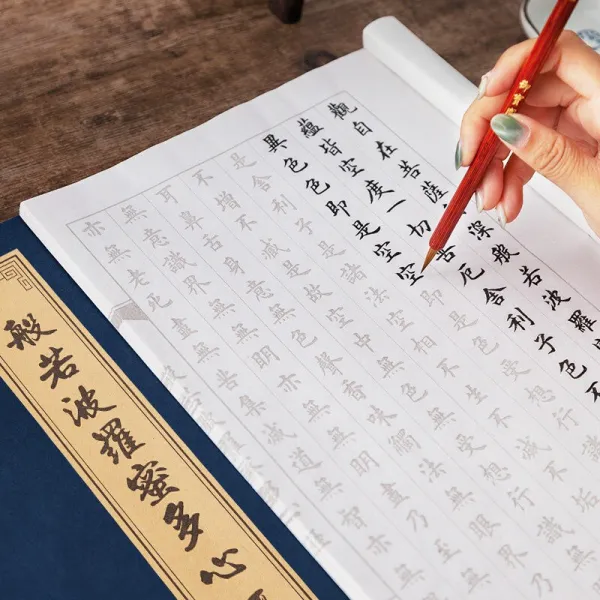 觀自在菩薩深般若波羅
蘊皆空度一切苦厄舍利子色不
異色色即是空空即是色受想行識
是舍利子是諸法空相不生不滅不垢
不增不減是故空中無色無受想行識
耳鼻舌身意無色聲香味觸法無眼界乃
無意識界無無明亦無無明盡乃至無
亦無老死盡無苦集滅道無智亦無
般若波羅蜜多心